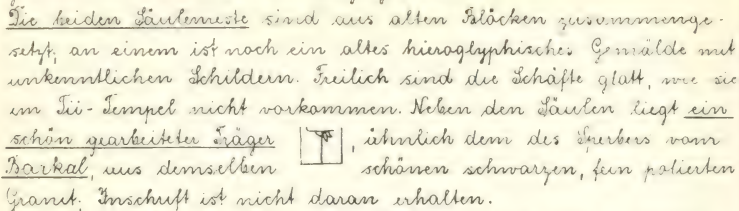 Die beiden Säulenreste sind aus alten Blöcken zusammenge-
setzt, an einem ist noch ein altes hieroglyphisches Gemälde mit
unkenntlichen Schildern. Freilich sind die Schäfte glatt, wie sie
im Tii-Tempel nicht vorkommen. Neben den Säulen liegt ein
schön gearbeiteter Träger , ähnlich dem des Sperbers vom
Barkal, aus demselben schönen schwarzen, fein polierten
Granit; Inschrift ist nicht daran erhalten.